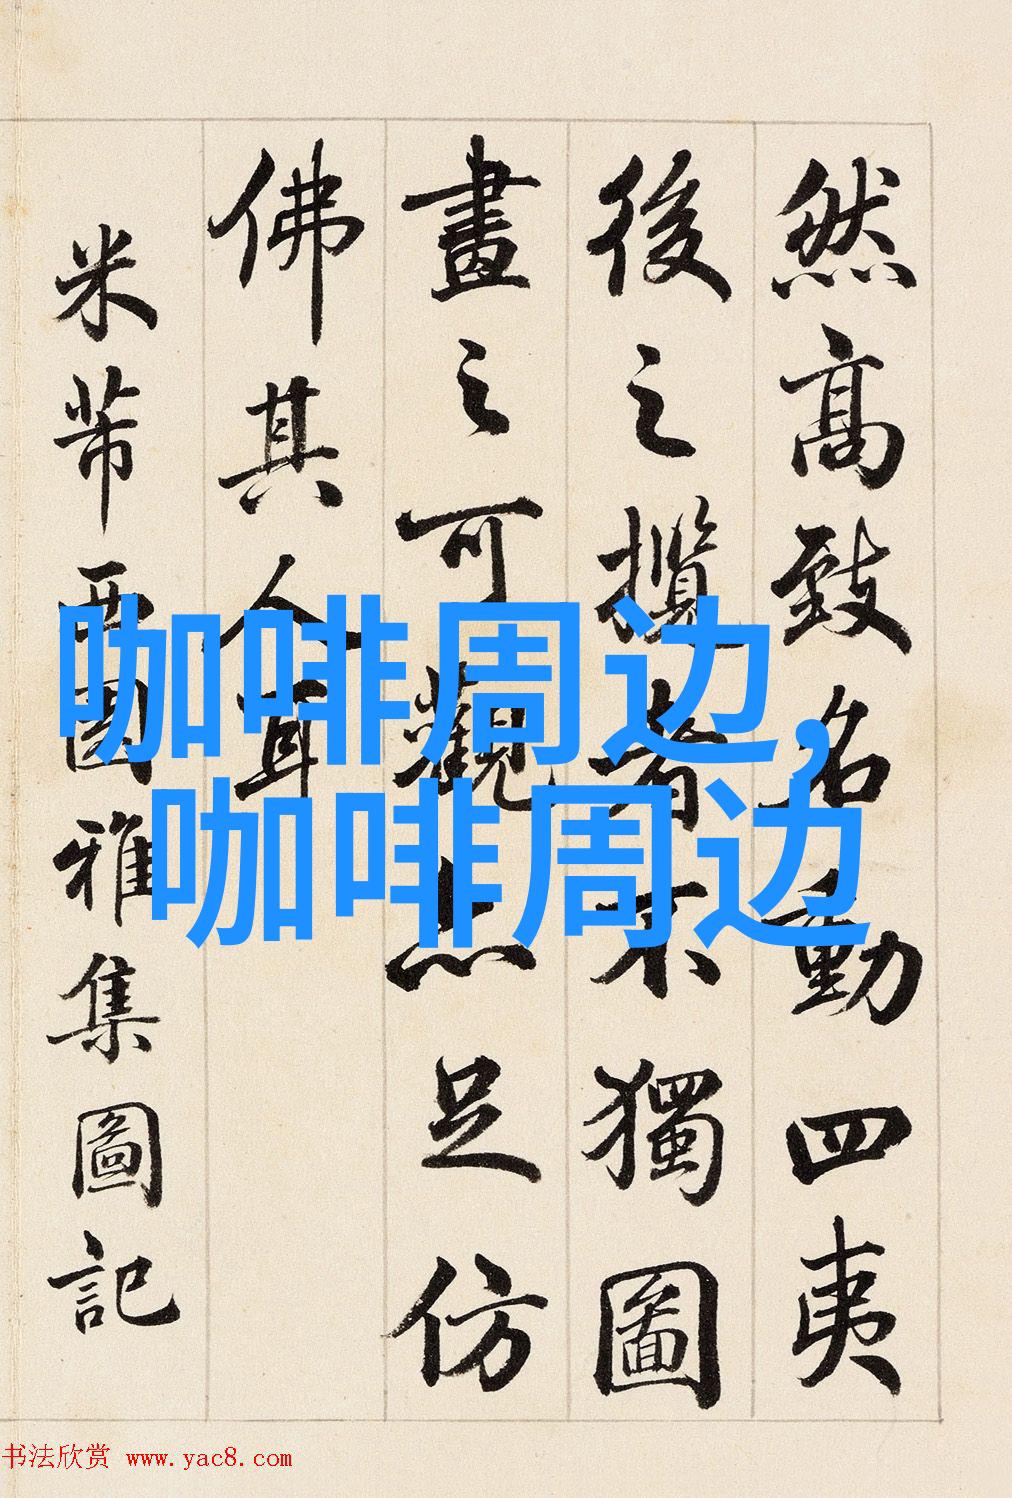 然高致名動四夷
後之攬者不獨圖
畫之可觀亦足仿
佛其人耳
米芾西園雅集圖記
咖啡周边,
咖啡周边
书法欣赏 www.yac8.com